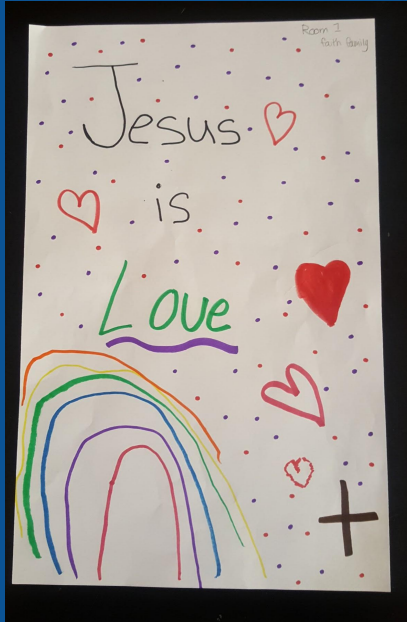 Room 1
Faith Family
Jesus
is
Love